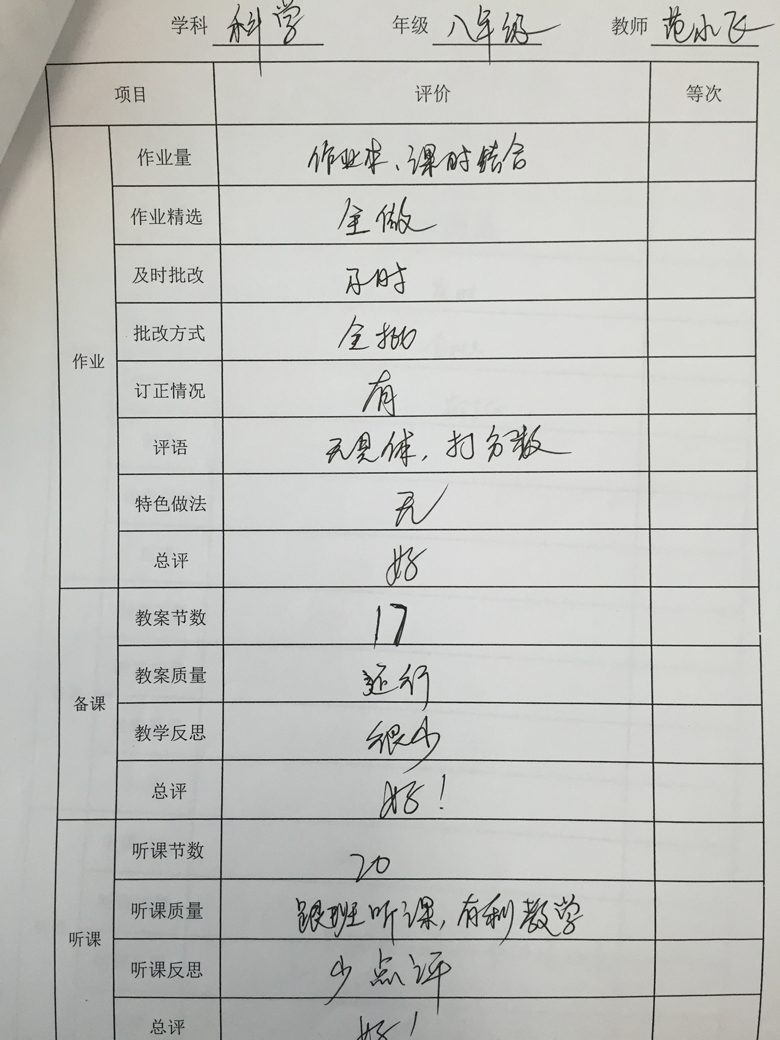 学科 科学 年级 八年级 教师 范小飞
项目 评价 等次
作业量 作业本、课时结合
作业精选 全做
及时批改 及时
批改方式 全批
作业
订正情况 有
评语 无具体，打分数
特色做法 无
总评 好
教案节数 17
教案质量 还行
备课
教学反思 很少
总评 好！
听课节数 20
听课质量 跟班听课，有利教学
听课
听课反思 少点评
总评 好！